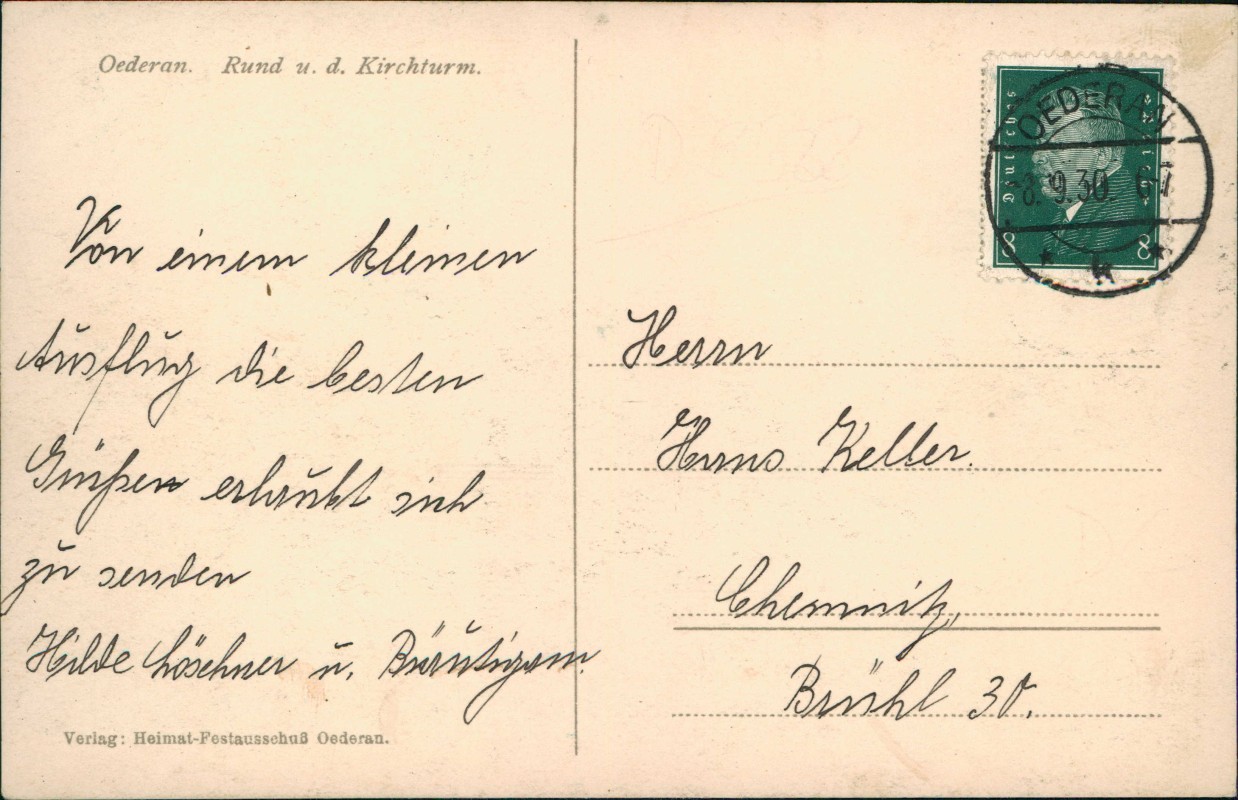 Oederan. Rund u. d. Kirchturm.
Von einem kleinen
Ausflug die besten
Grüßen erlaubt sich
zu senden
Hilde Löschner u. Bräutigam.
Verlag: Heimat-Festausschuß Oederan.
Deutsches Reich
8 8
OEDERAN
-8.9.30. 6-7
* k *
Herrn
Hans Keller.
Chemnitz,
Brühl 30.